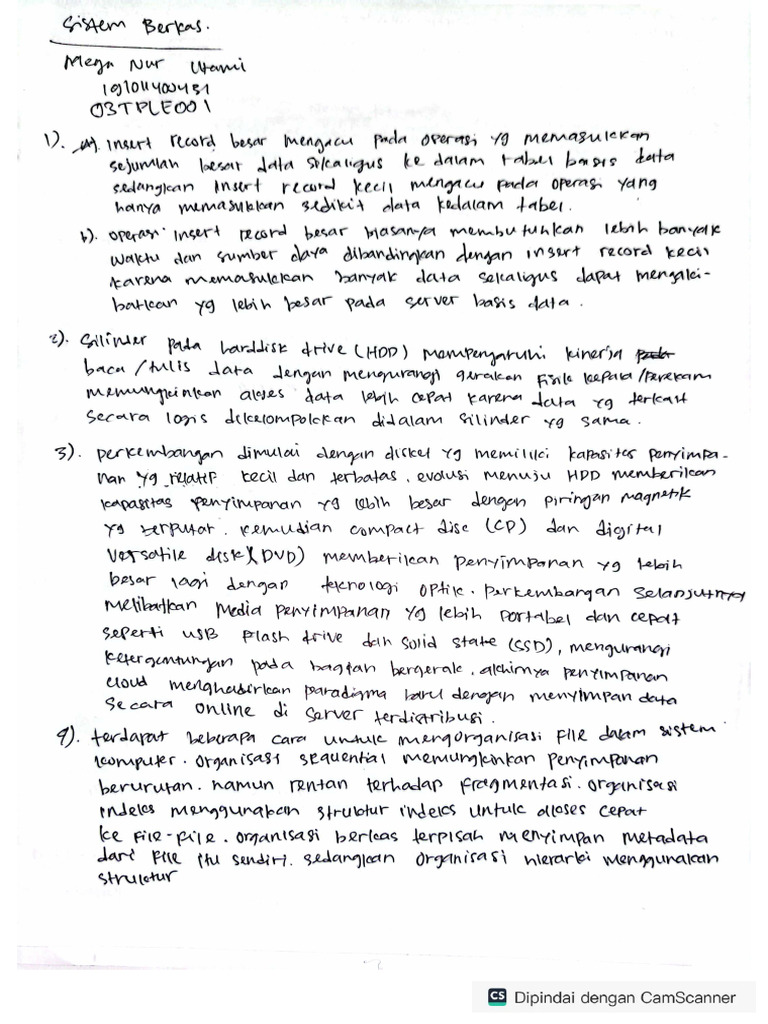 Sistem Berkas.
Mega Nur Utami
191011400431
03TPLE001
1). a). Insert record besar mengacu pada operasi yg memasukkan
sejumlah besar data sekaligus ke dalam tabel basis data
sedangkan insert record kecil mengacu pada operasi yang
hanya memasukkan sedikit data kedalam tabel.
b). operasi insert record besar biasanya membutuhkan lebih banyak
waktu dan sumber daya dibandingkan dengan insert record kecil
karena memasukkan banyak data sekaligus dapat mengaki-
batkan yg lebih besar pada server basis data.
2). Silinder pada harddisk drive (HDD) mempengaruhi kinerja
baca/tulis data dengan mengurangi gerakan fisik kepala/perekam
memungkinkan akses data lebih cepat karena data yg terkait
secara logis dikelompokkan didalam silinder yg sama.
3). perkembangan dimulai dengan disket yg memiliki kapasitas penyimpa-
nan yg relatif kecil dan terbatas. evolusi menuju HDD memberikan
kapasitas penyimpanan yg lebih besar dengan piringan magnetik
yg berputar. kemudian compact disc (CD) dan digital
versatile disk (DVD) memberikan penyimpanan yg lebih
besar lagi dengan teknologi optik. perkembangan selanjutnya
melibatkan media penyimpanan yg lebih portabel dan cepat
seperti USB flash drive dan solid state (SSD), mengurangi
ketergantungan pada bagian bergerak. akhirnya penyimpanan
cloud menghadirkan paradigma baru dengan menyimpan data
secara online di server terdistribusi.
4). terdapat beberapa cara untuk mengorganisasi file dalam sistem
komputer. organisasi sequential memungkinkan penyimpanan
berurutan. namun rentan terhadap fragmentasi. organisasi
indeks menggunakan struktur indeks untuk akses cepat
ke file-file. organisasi berkas terpisah menyimpan metadata
dari file itu sendiri. sedangkan organisasi hierarki menggunakan
struktur
CS Dipindai dengan CamScanner